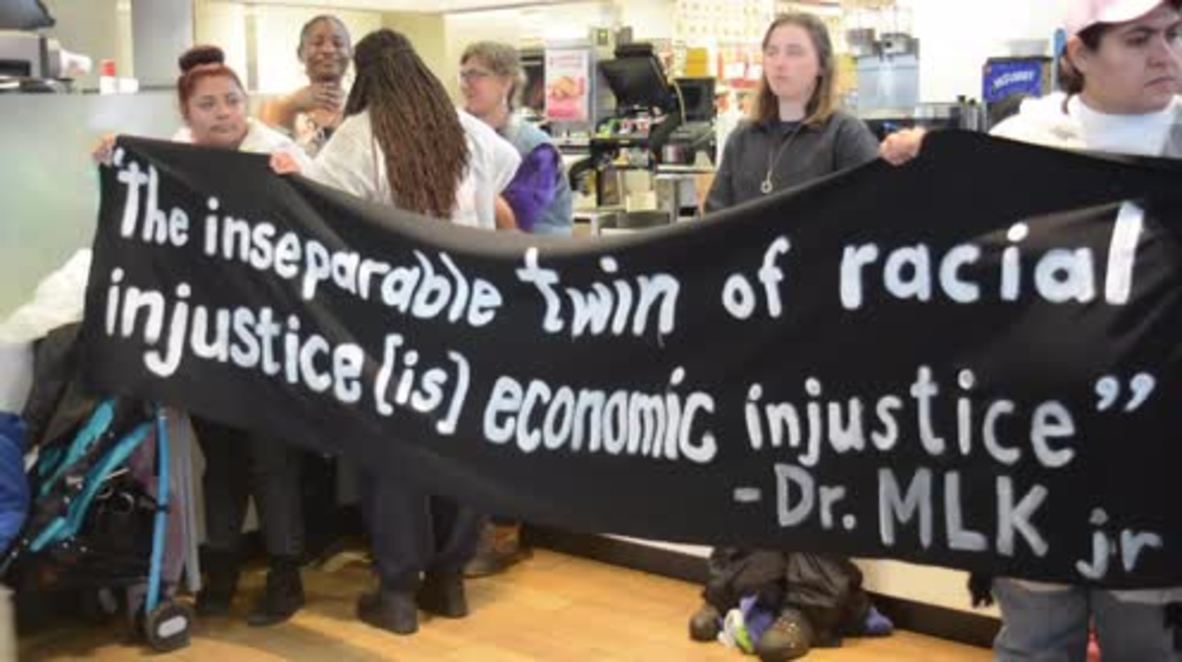 "The inseparable twin of racial
injustice [is] economic injustice"
-Dr. MLK jr